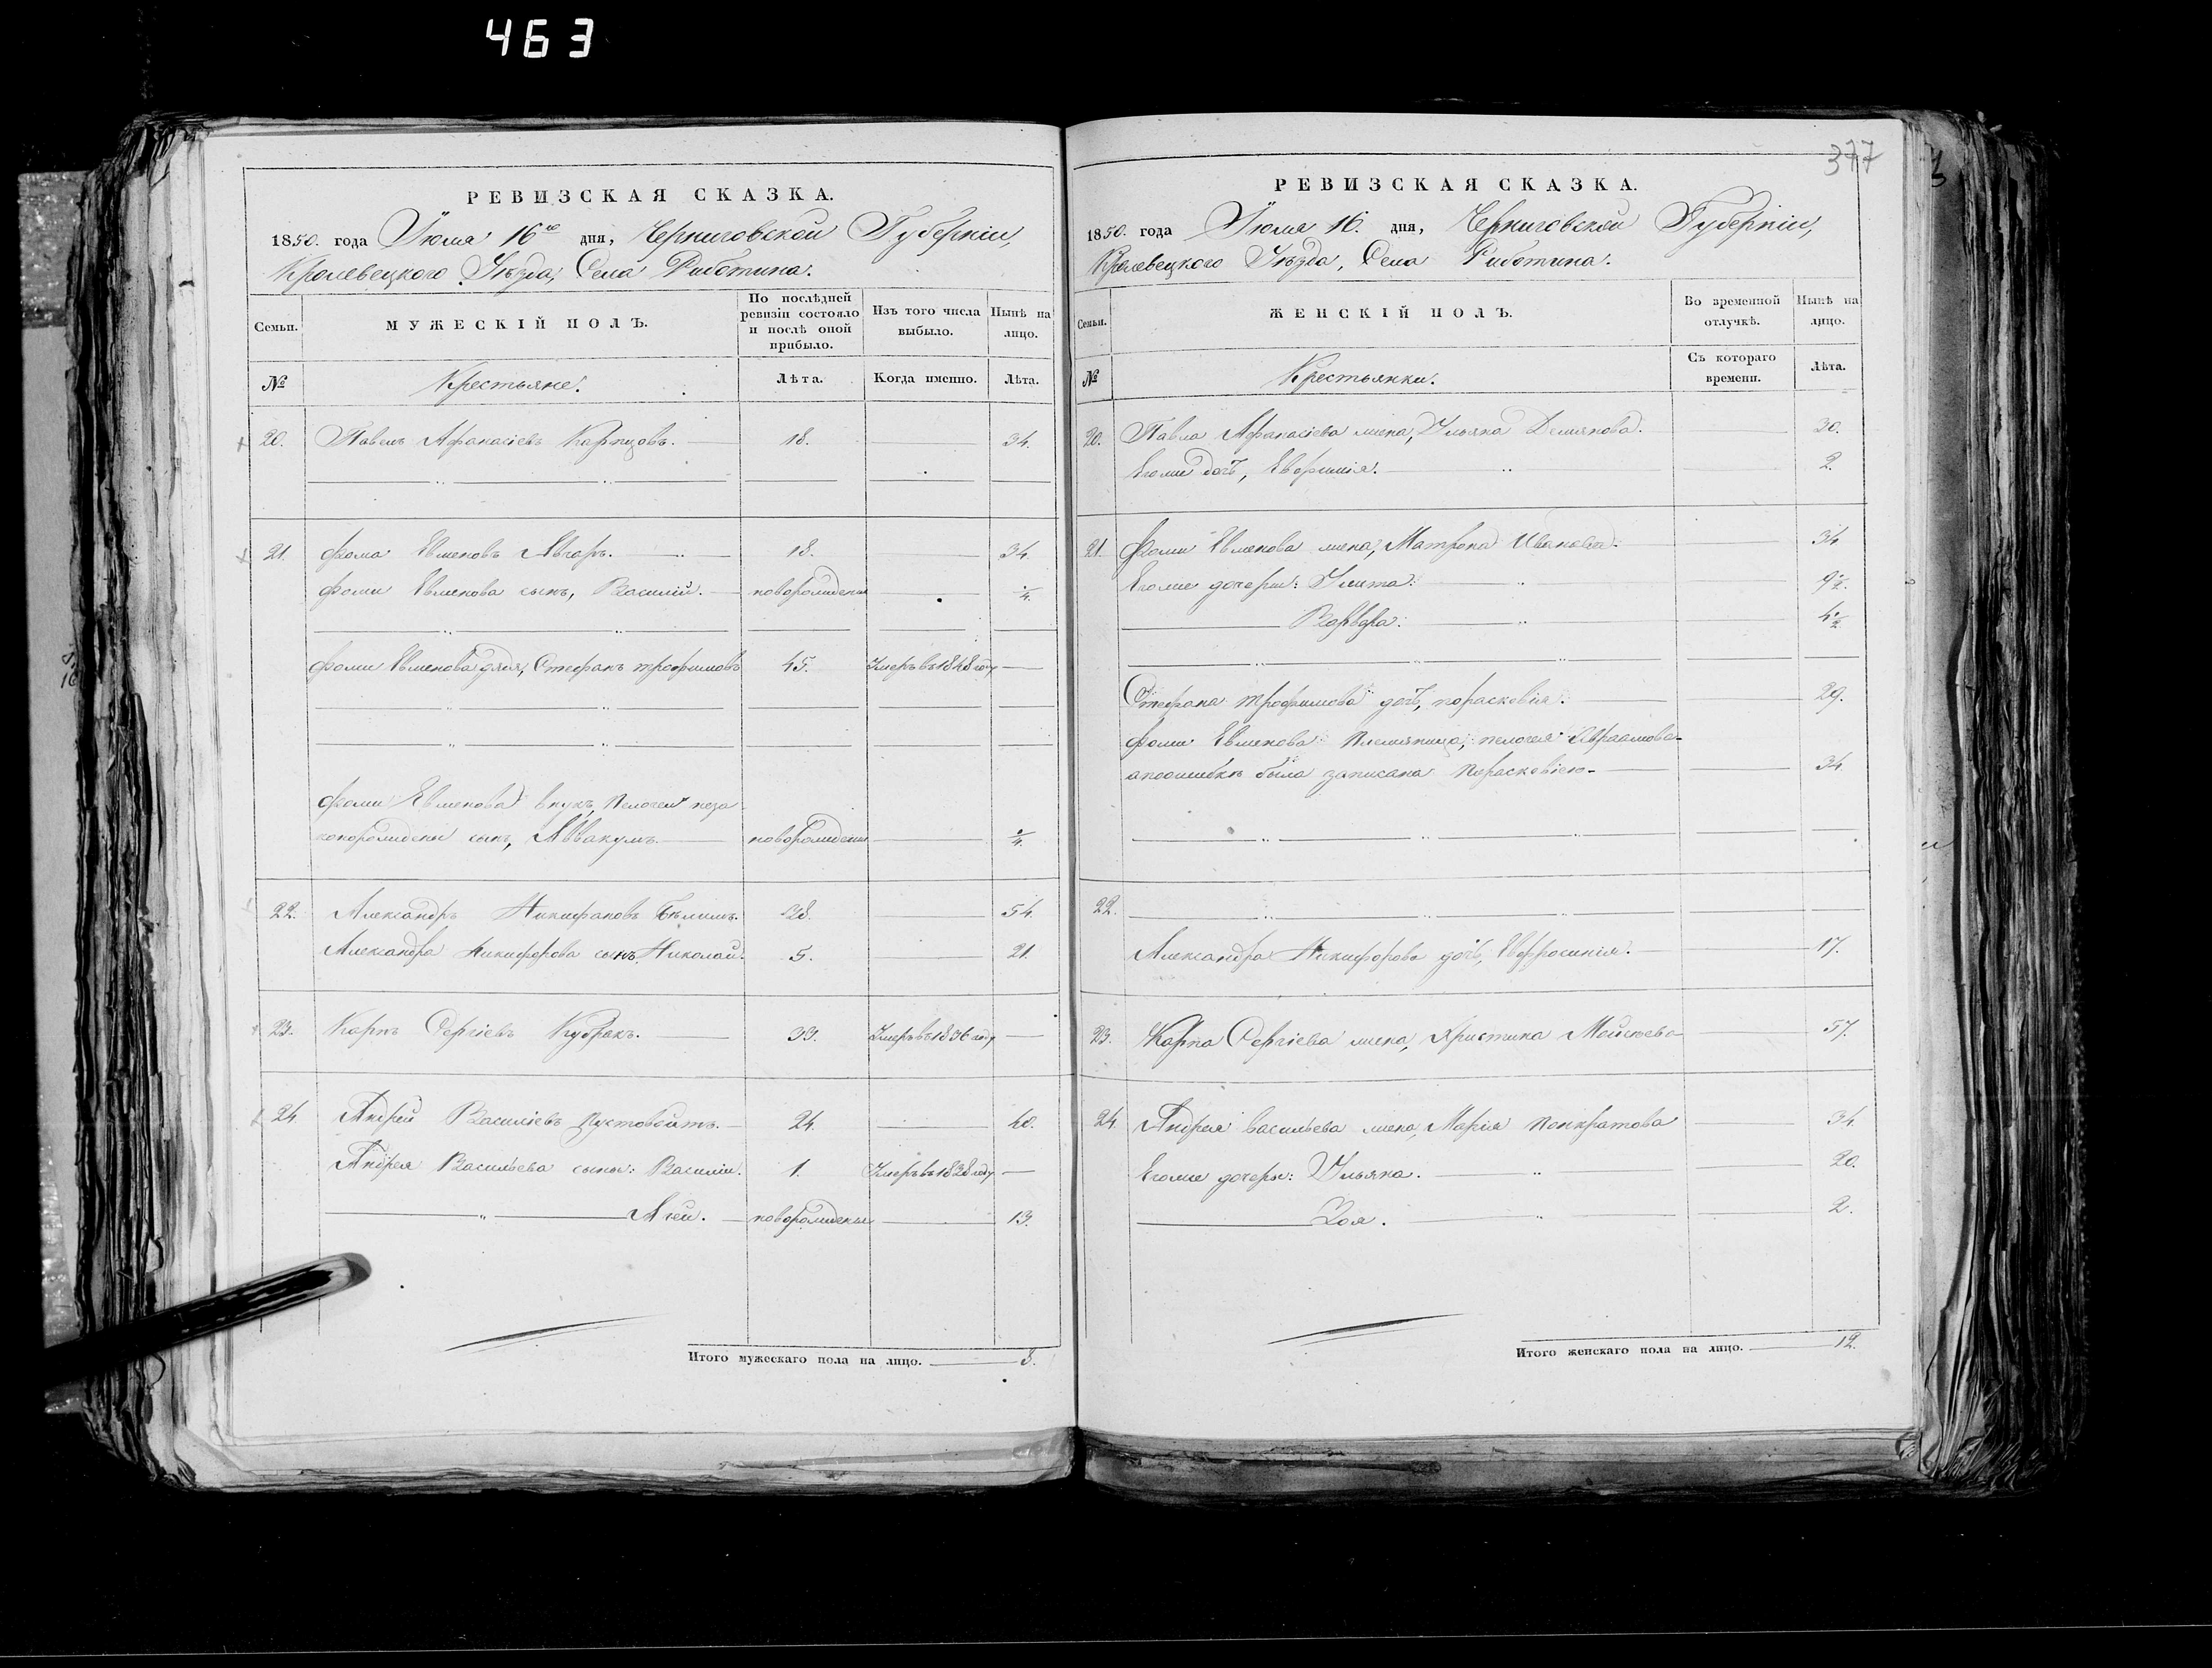 463
377
РЕВИЗСКАЯ СКАЗКА.
1850. года Іюля 16го дня, Черниговской Губерніи,
Кролевецкого Уѣзда, Села Риботина.
Семьи. МУЖЕСКІЙ ПОЛЪ. По послѣдней ревизіи состояло и послѣ оной прибыло. Изъ того числа выбыло. Нынѣ на лицо.
№ Крестьяне. Лѣта. Когда именно. Лѣта.
20. Павелъ Афанасіевъ Карпцовъ. 18. 34.
21. Фома Евменовъ 18. 34.
Фомы Евменова сынъ, Василій. новорожденны
Фомы Евменова дядя, Стефанъ трофимовъ 45. Умеръ въ 1848 году
Фомы Евменова внукъ, Пелагеи неза
конорожденны сынъ, Аввакумъ. новорожденны
22. Александръ Никифановъ 38. 54.
Александра Никифорова сынъ, Николай. 5. 21.
23. Карпъ Сергіевъ Кубракъ. 39. Умеръ въ 1836 году
24. Андрей Василіевъ Пустовойтъ. 24. 40.
Андрея Васильева сыны: Василіи. 1. Умеръ въ 1838 году
Агеи. новорожденны 13.
Итого мужескаго пола на лицо. 8.
РЕВИЗСКАЯ СКАЗКА.
1850. года Іюля 16. дня, Черниговской Губерніи,
Кролевецкого Уѣзда, Села Риботина.
Семьи. ЖЕНСКІЙ ПОЛЪ. Во временной отлучкѣ. Нынѣ на лицо.
№ Крестьянки. Съ котораго времени. Лѣта.
20. Павла Афанасіева жена, Ульяна Демянова. 30.
Егоже дочь, Евфимія. 2.
21. Фомы Евменова жена, Матрона Иванова. 34
Егоже дочери: Улита: 9½.
Варвара: 4½.
Стефана трофимова дочь, порасковія. 29.
Фомы Евменова племяница, пелагея Авраамова
апоошибкѣ была записана Порасковіею 34.
22.
Александра Никифорова дочь, Евфросинія. 17.
23. Карпа Сергіева жена, Христина Мойсѣева 57.
24. Андрея васильева жена, Марія Понкратова 34.
Егоже дочеры: Ульяна. 20.
Зоя. 2.
Итого женскаго пола на лицо. 12.